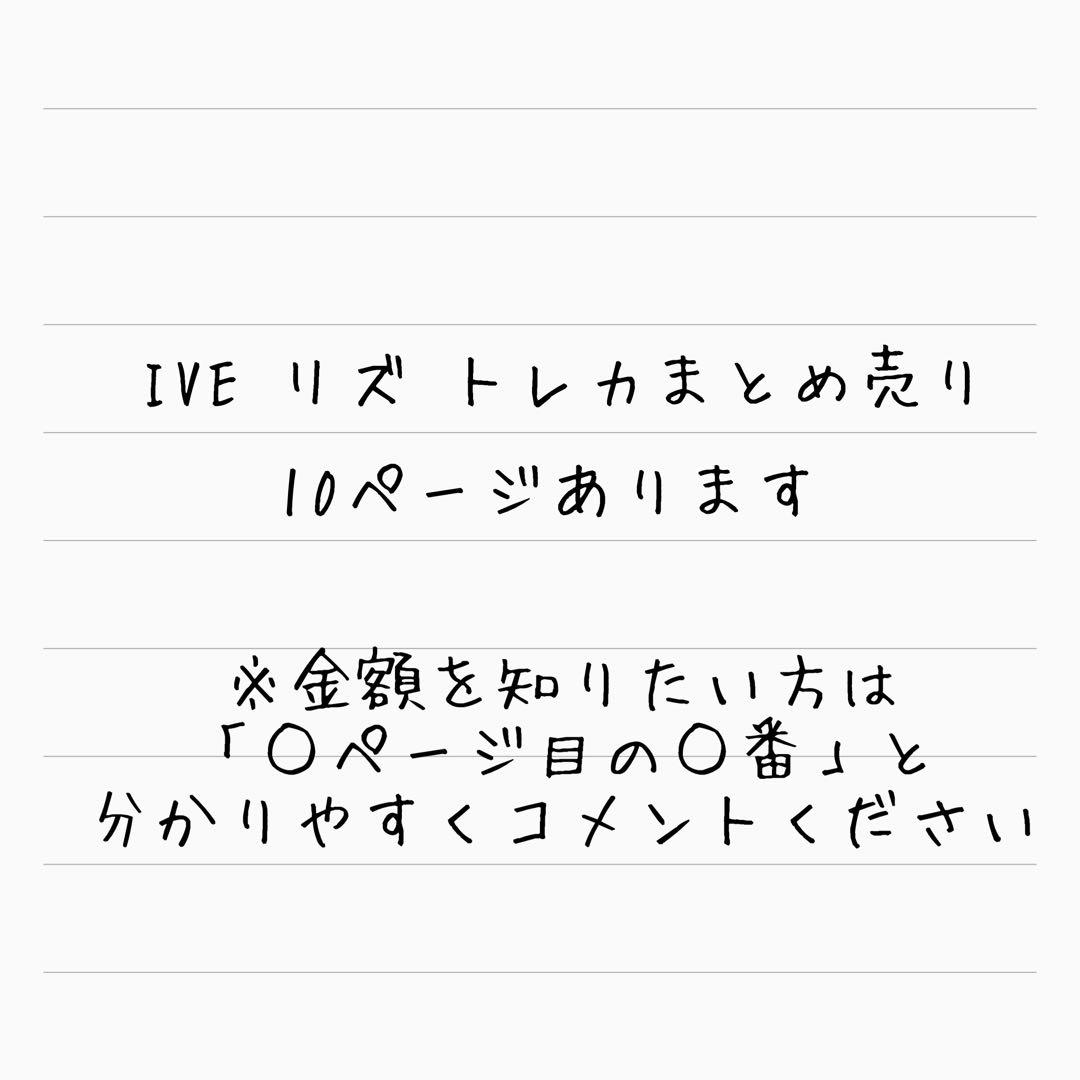 IVE リズ トレカまとめ売り
10ページあります
※金額を知りたい方は
「〇ページ目の〇番」と
分かりやすくコメントください